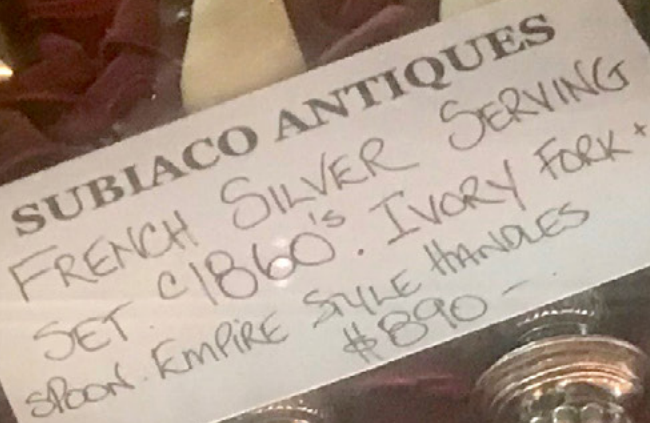 SUBIACO ANTIQUES
FRENCH SILVER SERVING
SET. C1860's. IVORY FORK +
SPOON. EMPIRE STYLE HANDLES
$890-